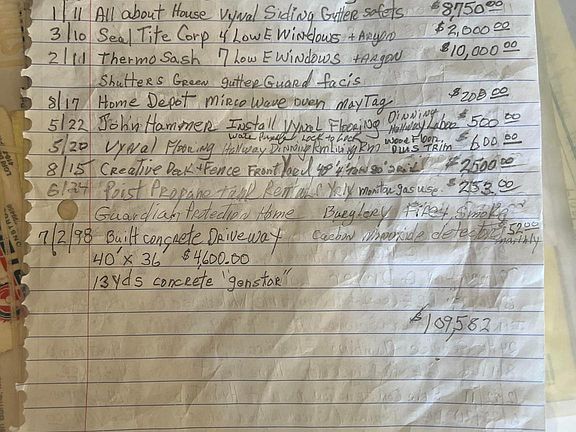 1/11 All about House Vynal Siding Gutter soffets $8,750.00
3/10 Seal Tite Corp 4 Low E Windows + Argon $2,000.00
2/11 Thermo Sash 7 Low E Windows + Argon $10,000.00
Shutters Green gutter Guard facis
8/17 Home Depot mirco wave oven may Tag $208.00
5/22 John Hammer Install Vynal Flooring Dinning Hallway Labor $500.00
5/20 Vynal Flooring Hallway Dinning Rm Living Rm Wood Floor Plus Trim $600.00
8/15 Creative Deck + Fence Front Yard $2500.00
6/24 Propane tank monitor gas use $253.00
Guardian Protection Home Burglery Fire, Smoke
7/2/98 Built concrete Driveway Carbon monoxide detectors monthly
40' x 36' $4600.00
13 yds concrete "genstar"
$109,582